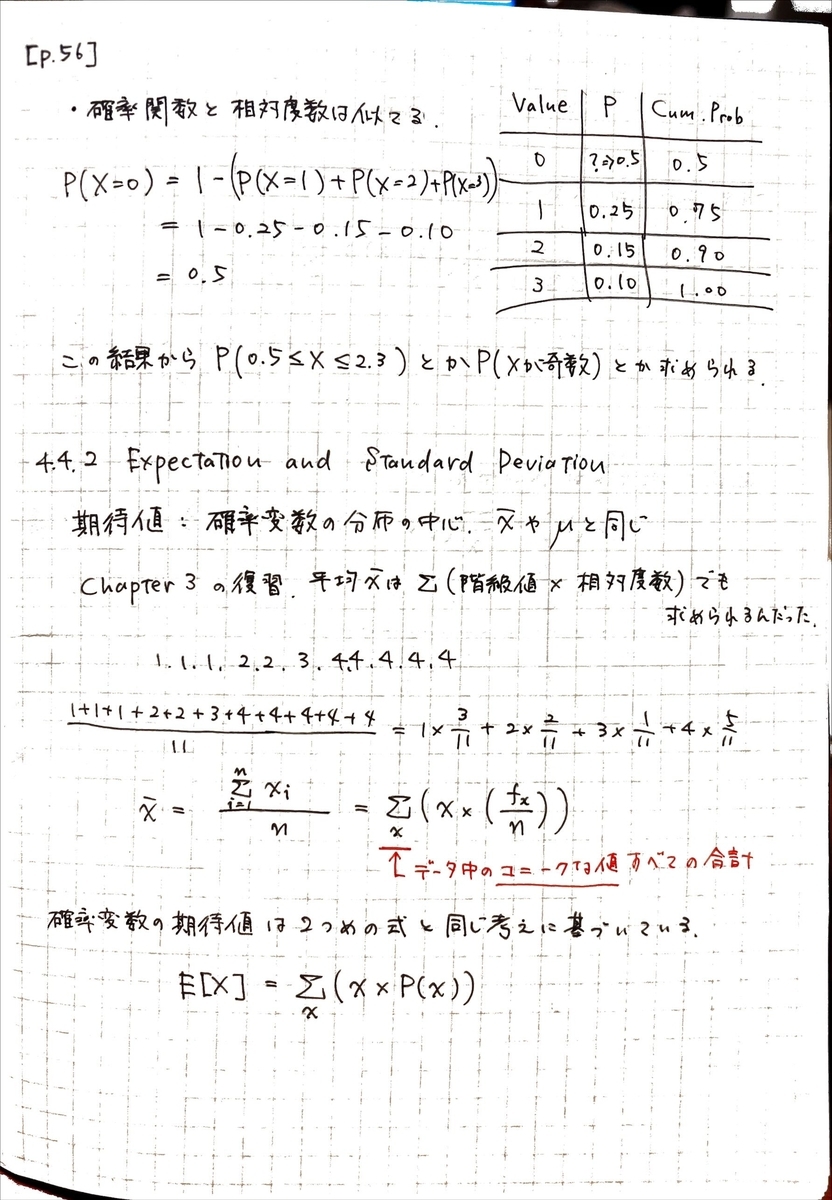 [p.56]
・確率関数と相対度数は似てる.
Value P Cum.Prob
0 ?⇒0.5 0.5
1 0.25 0.75
2 0.15 0.90
3 0.10 1.00
P(X=0) = 1-(P(X=1)+P(X=2)+P(X=3))
= 1-0.25-0.15-0.10
= 0.5
この結果から P(0.5≤X≤2.3)とかP(Xが奇数)とか求められる.
4.4.2 Expectation and Standard Deviation
期待値: 確率変数の分布の中心. x̄やμと同じ
Chapter 3 の復習. 平均x̄はΣ(階級値×相対度数)でも
求められるんだった.
1.1.1.2.2.3.4.4.4.4.4
(1+1+1+2+2+3+4+4+4+4+4)/11 = 1×3/11 + 2×2/11 + 3×1/11 + 4×5/11
x̄ = (Σ_{i=1}^{n} xi)/n = Σ_x (x×(fx/n))
↑データ中のユニークな値すべての合計
確率変数の期待値は2つめの式と同じ考えに基づいている.
E[X] = Σ_x (x×P(x))